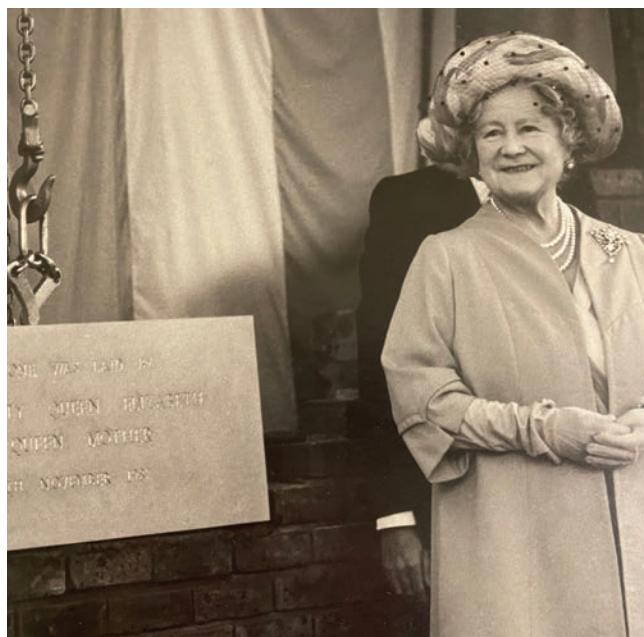 WAS LAID BY
QUEEN ELIZABETH
QUEEN MOTHER
TH NOVEMBER